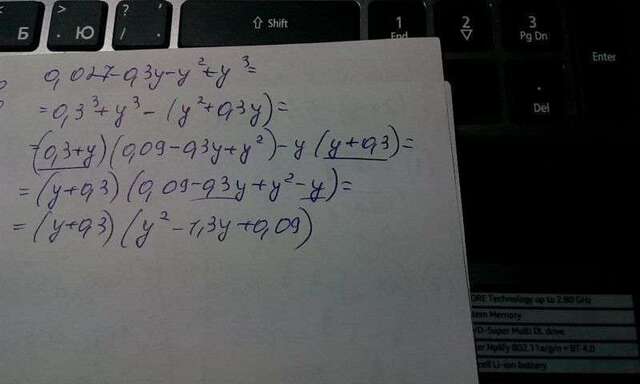 Б
>
.
Ю
?
/
⇧ Shift
1
End
2
▽
3
Pg Dn
Enter
.
Del
0,027-0,3y-y²+y³=
=0,3³+y³-(y²+0,3y)=
=(0,3+y)(0,09-0,3y+y²)-y(y+0,3)=
=(y+0,3)(0,09-0,3y+y²-y)=
=(y+0,3)(y²-1,3y+0,09)
ORE Technology up to 2.80 GHz
tem Memory
D-Super Multi DL drive
802.11a/g/n + BT 4.0
cell Li-ion battery